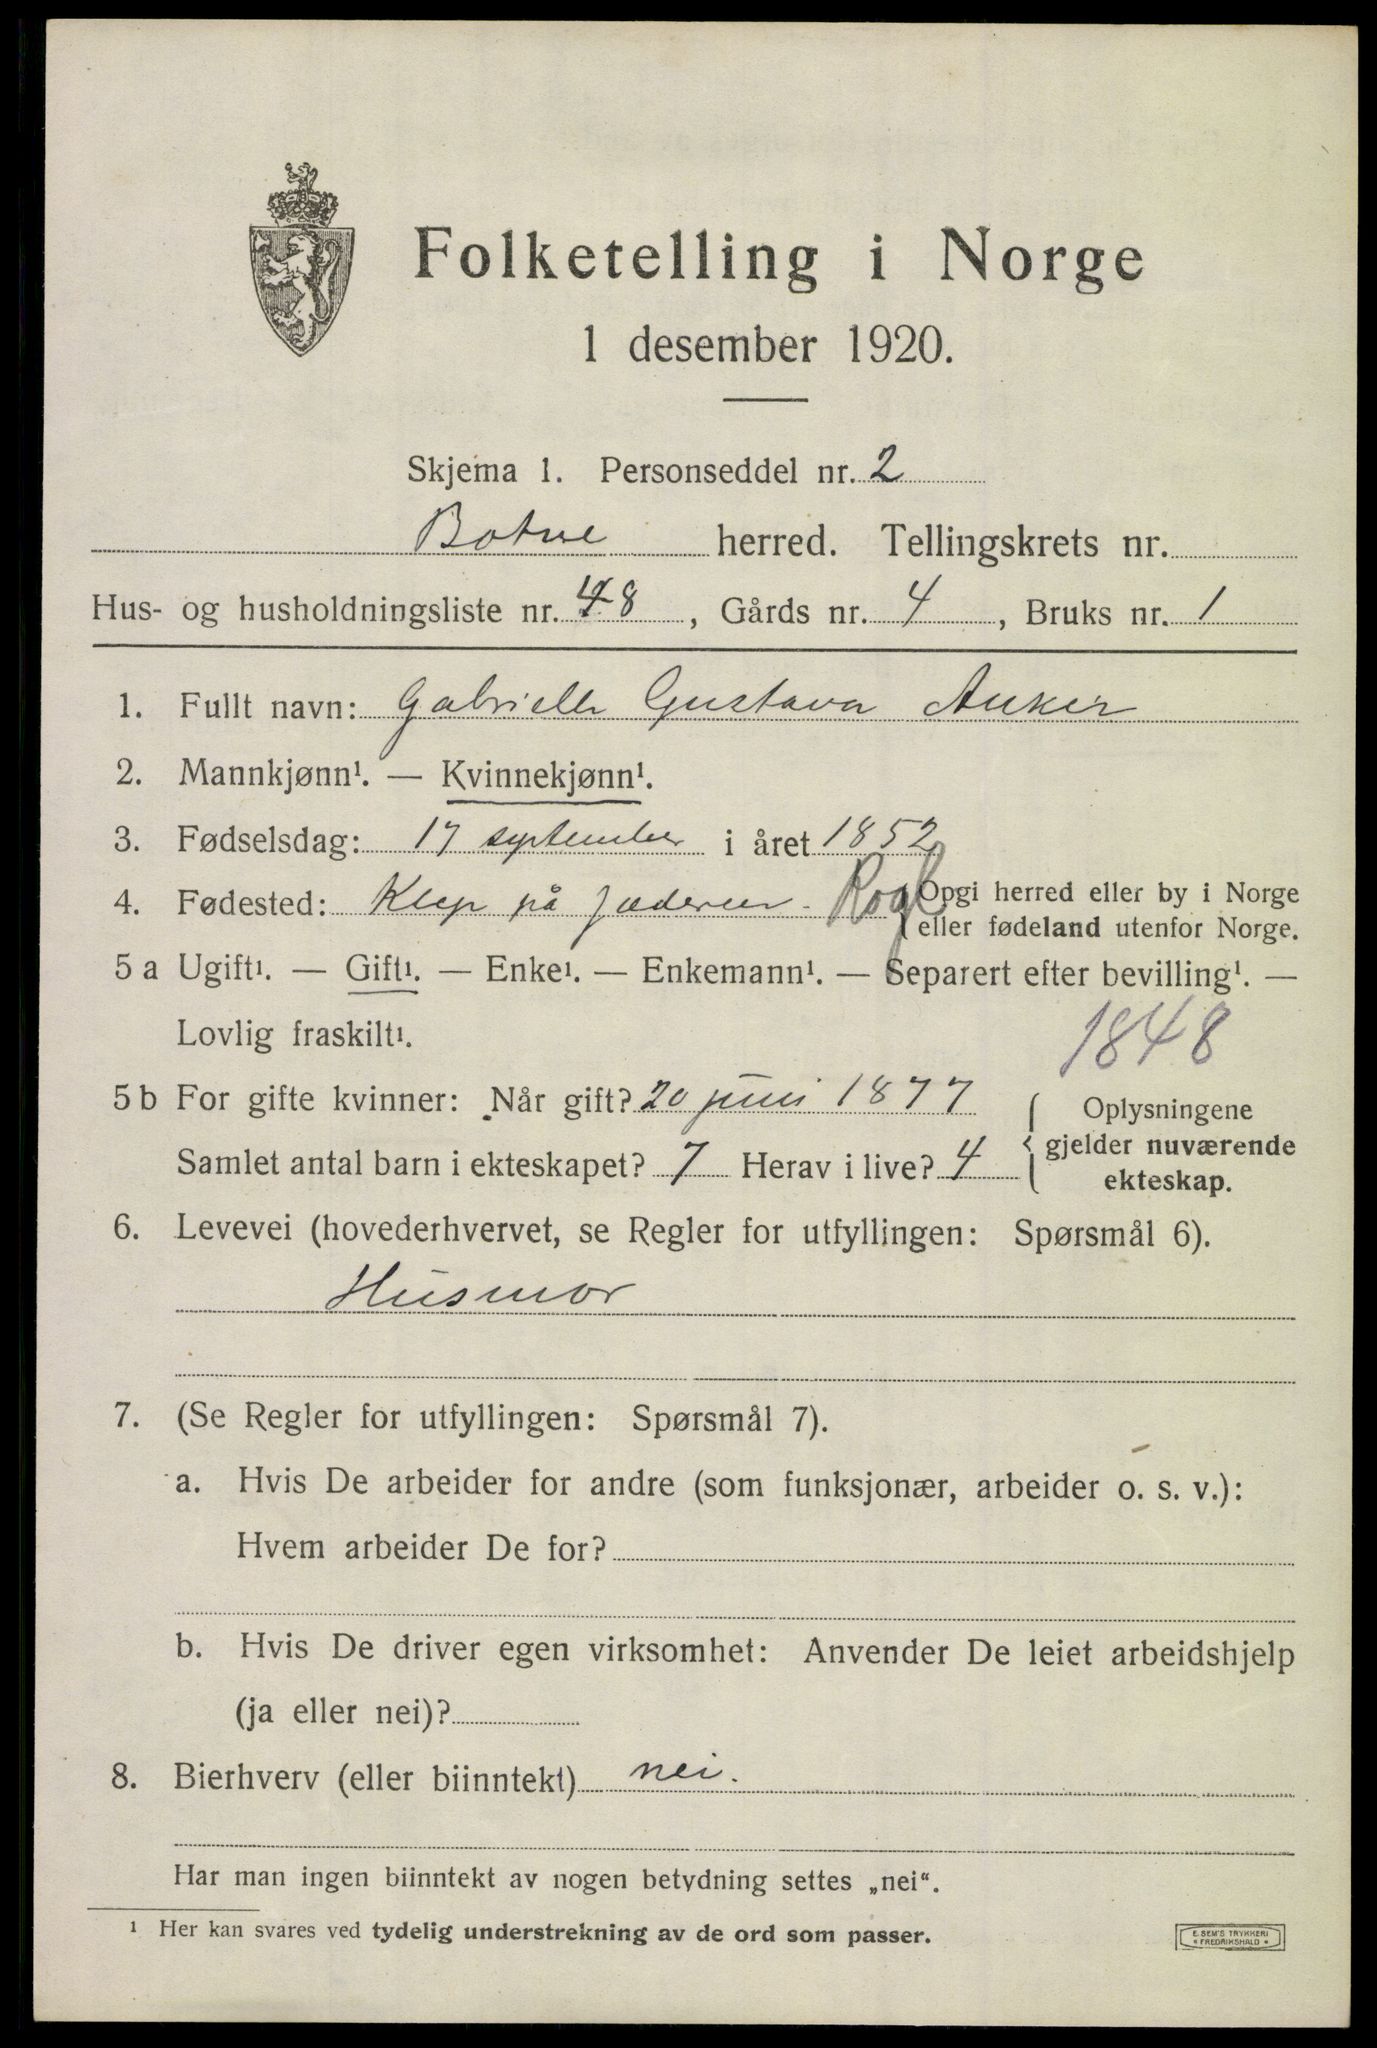 Folketelling i Norge
1 desember 1920.
Skjema 1. Personseddel nr. 2
Botne herred. Tellingskrets nr.
Hus- og husholdningsliste nr. 48, Gårds nr. 4, Bruks nr. 1
1. Fullt navn: Gabrielle Gustava Anker
2. Mannkjønn¹. — Kvinnekjønn¹.
3. Fødselsdag: 17 september i året 1852
4. Fødested: Klep på Jæderen. Rogl Opgi herred eller by i Norge
eller fødeland utenfor Norge.
5 a Ugift¹. — Gift¹. — Enke¹. — Enkemann¹. — Separert efter bevilling¹. —
Lovlig fraskilt¹.
1848
5 b For gifte kvinner: Når gift? 20 juni 1877
Samlet antal barn i ekteskapet? 7 Herav i live? 4
Oplysningene
gjelder nuværende
ekteskap.
6. Levevei (hovederhvervet, se Regler for utfyllingen: Spørsmål 6).
Husmor
7. (Se Regler for utfyllingen: Spørsmål 7).
a. Hvis De arbeider for andre (som funksjonær, arbeider o. s. v.):
Hvem arbeider De for?
b. Hvis De driver egen virksomhet: Anvender De leiet arbeidshjelp
(ja eller nei)?
8. Bierhverv (eller biinntekt) nei.
Har man ingen biinntekt av nogen betydning settes „nei“.
¹ Her kan svares ved tydelig understrekning av de ord som passer.
E. SEM'S TRYKKERI
* FREDRIKSHALD *